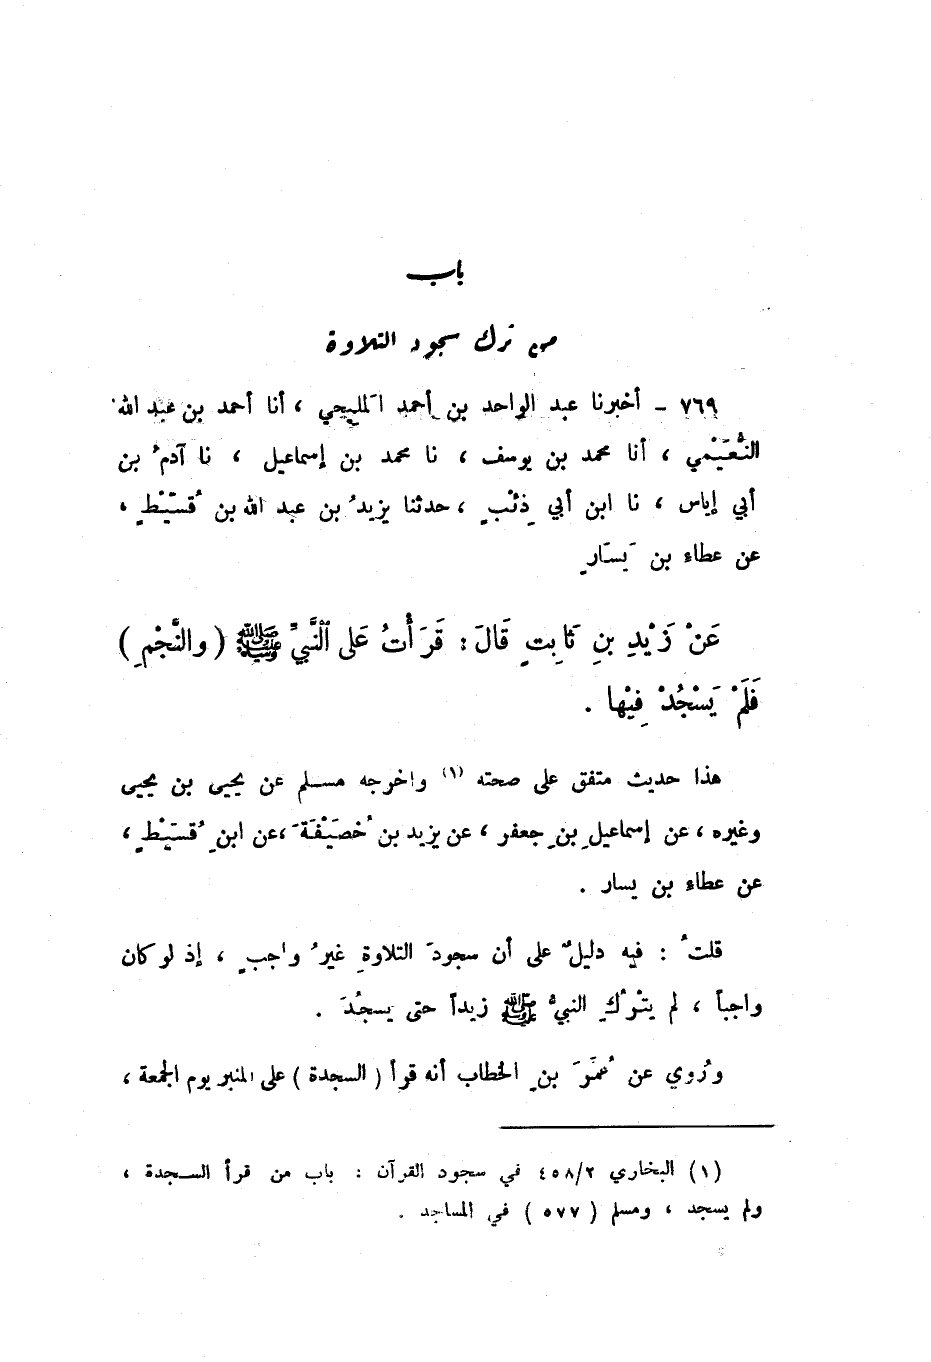 باب
من ترك سجود التلاوة
٧٦٩ - أخبرنا عبد الواحد بن أحمد المَليحي ، أنا أحمد بن عبد الله
النُّعَيْمي ، أنا محمد بن يوسف ، نا محمد بن إسماعيل ، نا آدمُ بن
أبي إياس ، نا ابن أبي ذِئْبٍ ، حدثنا يزيدُ بن عبد الله بن قُسَيْطٍ ،
عن عطاء بن يَسَارٍ
عَنْ زَيْدِ بنِ ثَابِتٍ قَالَ : قَرَأْتُ عَلى النَّبيِّ ﷺ ( والنَّجْمِ )
فَلَمْ يَسْجُدْ فِيْها .
هذا حديث متفق على صحته (١) واخرجه مسلم عن يحيى بن يحيى
وغيره ، عن إسماعيلِ بنِ جعفر ، عن يزيد بن خُصَيْفَةَ ، عن ابنِ قُسَيْطٍ ،
عن عطاء بن يسار .
قلتُ : فيه دليلٌ على أن سجودَ التلاوةِ غيرُ واجبٍ ، إذ لو كان
واجباً ، لم يتْرُكِ النبيُّ ﷺ زيداً حتى يسجُدَ .
ورُوي عن عُمَرَ بنِ الخطاب أنه قرأ ( السجدة ) على المنبر يوم الجمعة ،
(١) البخاري ٤٥٨/٢ في سجود القرآن : باب من قرأ السجدة ،
ولم يسجد ، ومسلم ( ٥٧٧ ) في المساجد .